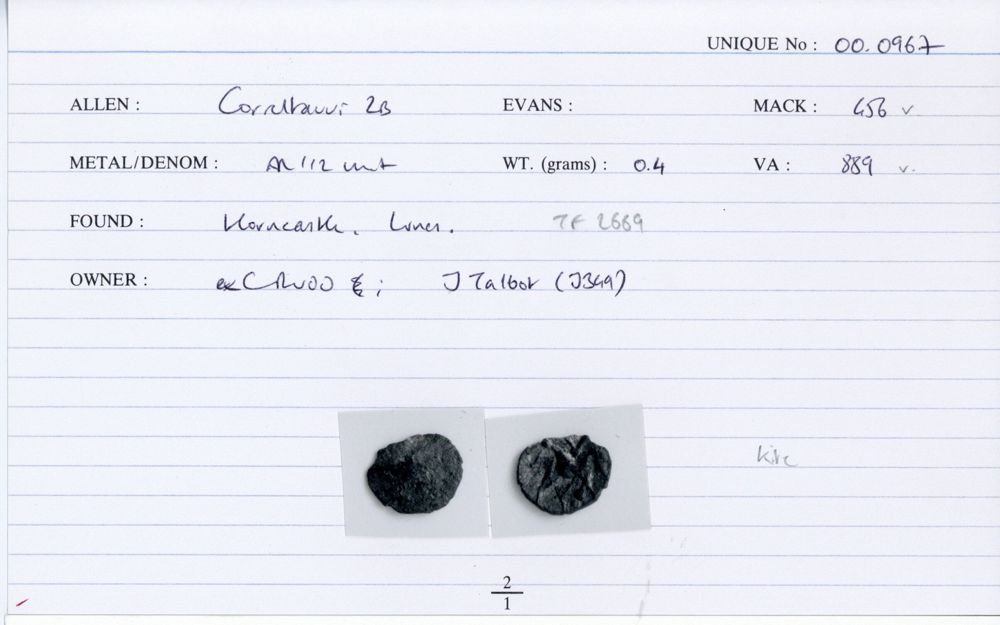 UNIQUE No : 00.0967
ALLEN : Corieltauvi 2B EVANS : MACK : 456 v
METAL/DENOM : AR 1/2 unit WT. (grams) : 0.4 VA : 889 v.
FOUND : Horncastle, Lincs. TF 2669
OWNER : ex CR ; J Talbot (J349)
kite
2
1